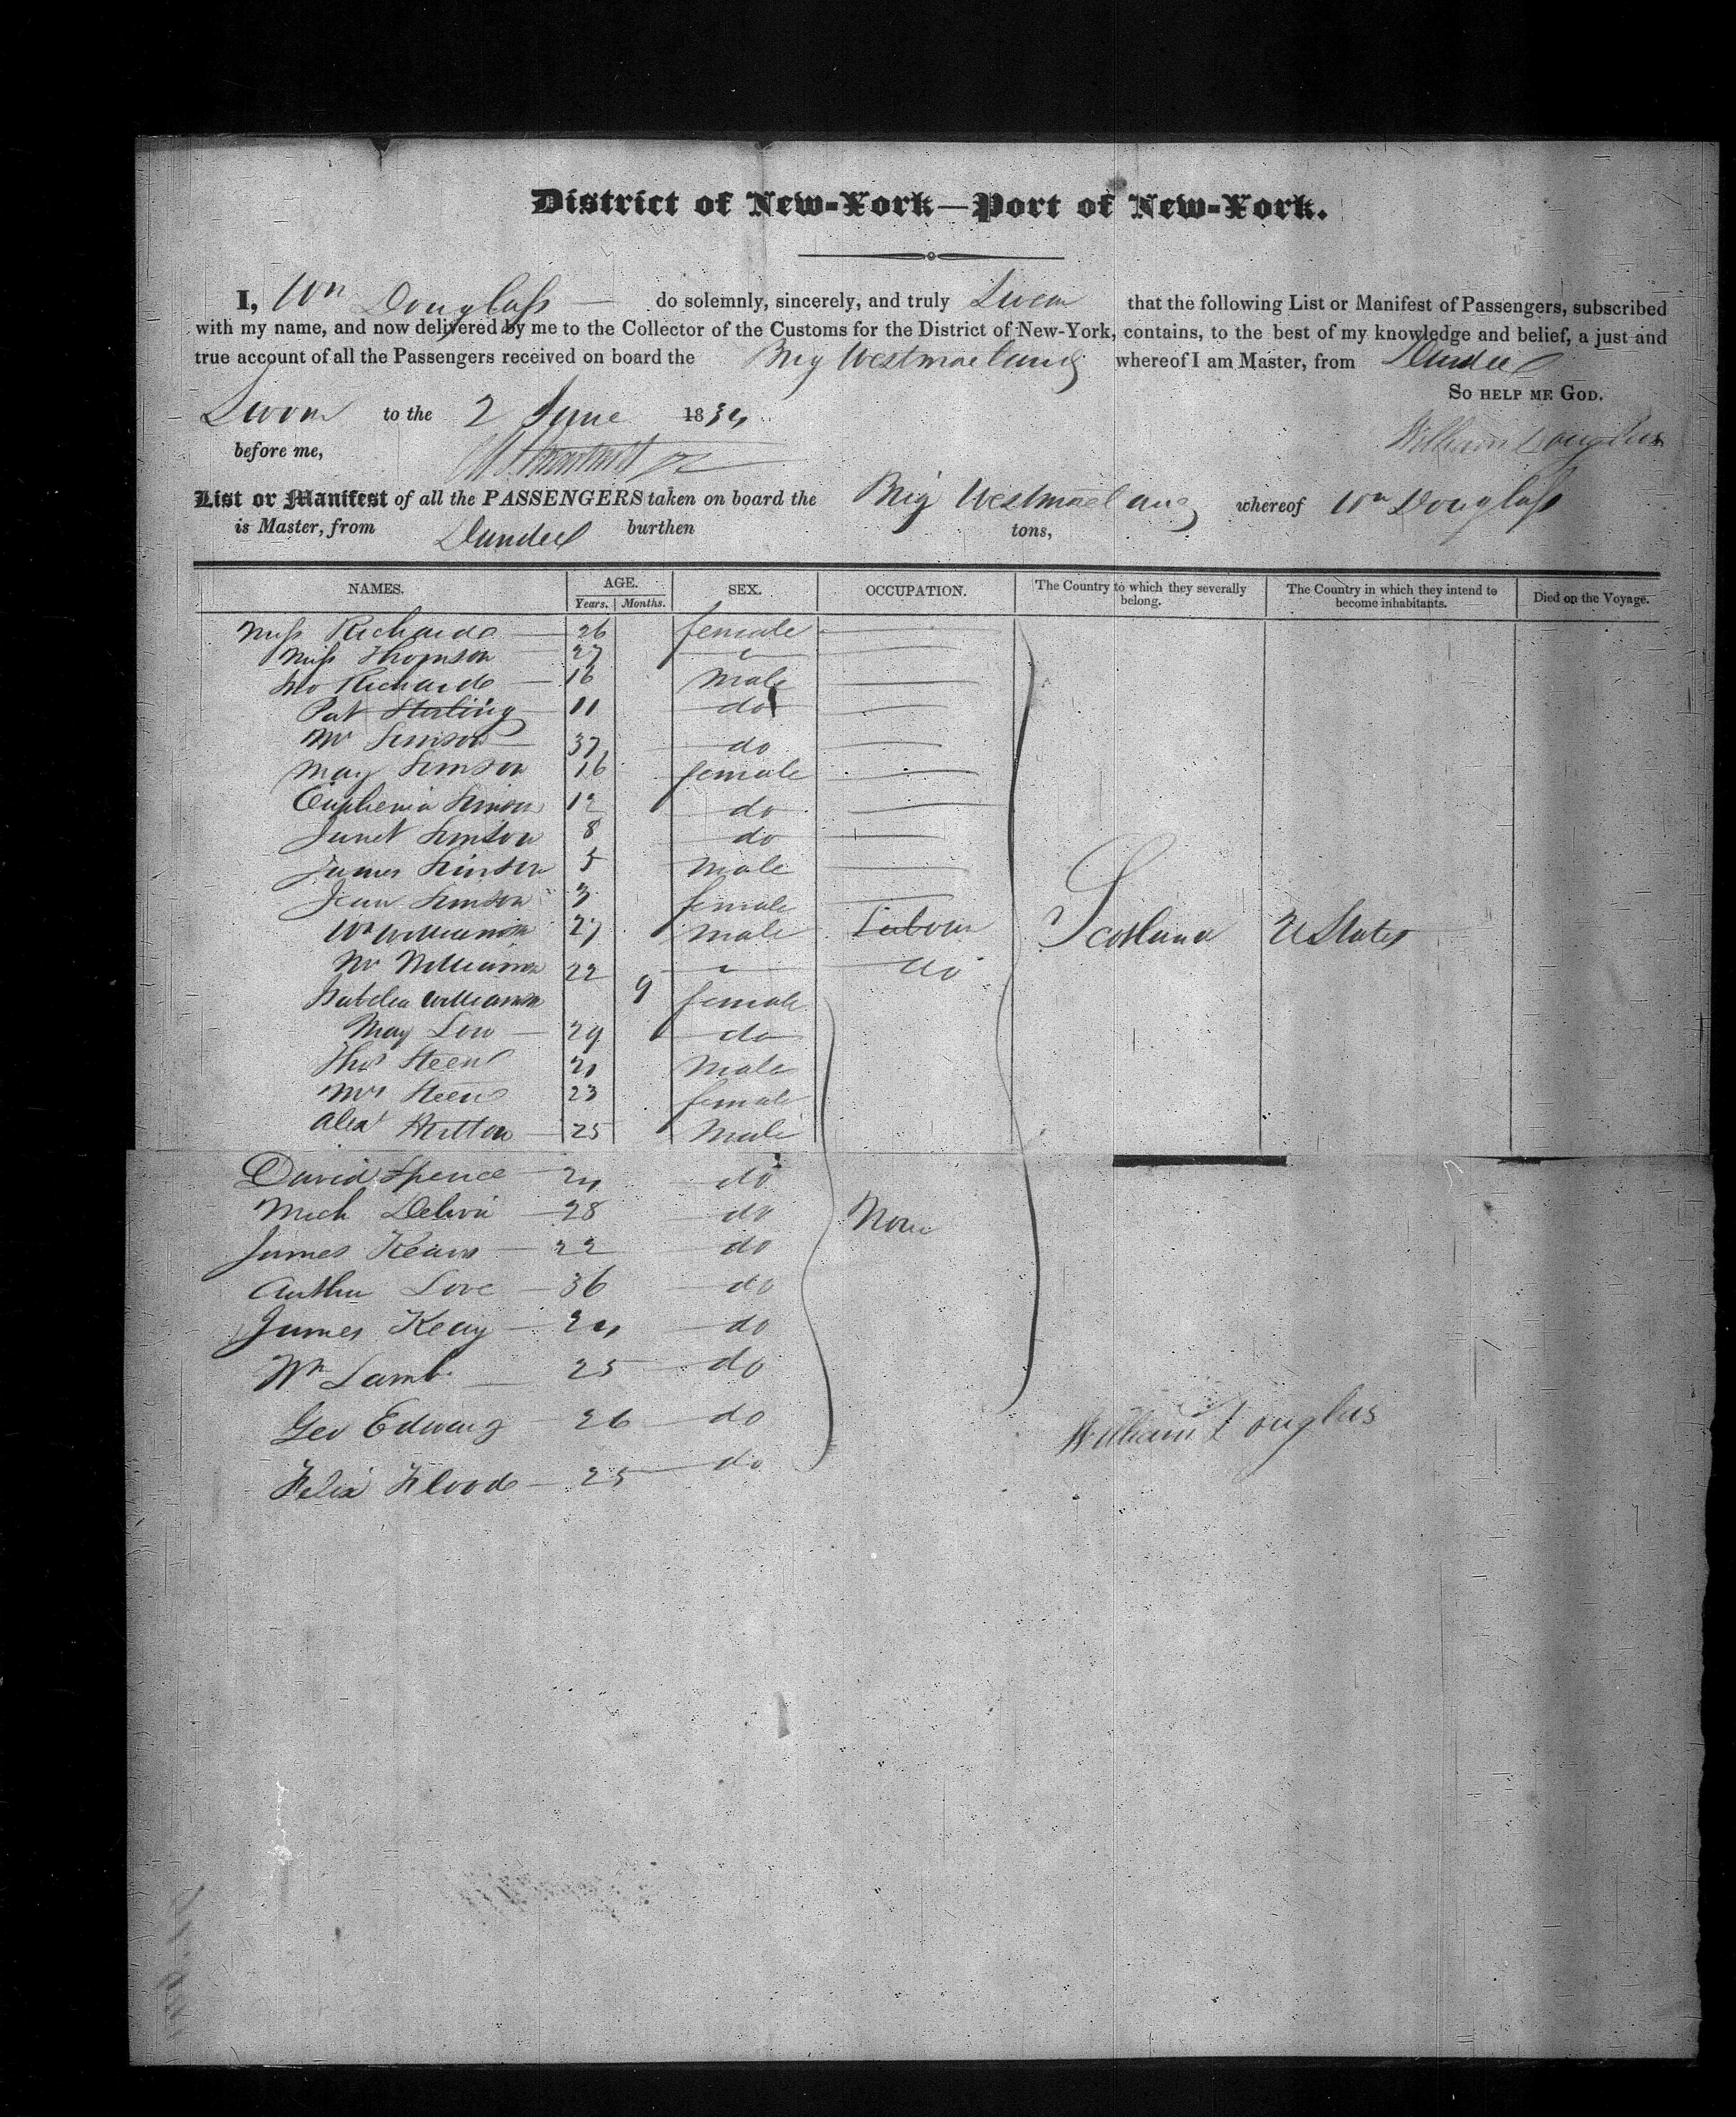 District of New-York—Port of New-York.
I, Wm Douglass — do solemnly, sincerely, and truly Swear that the following List or Manifest of Passengers, subscribed
with my name, and now delivered by me to the Collector of the Customs for the District of New-York, contains, to the best of my knowledge and belief, a just and
true account of all the Passengers received on board the Brig Westmoreland whereof I am Master, from Dundee
So help me God.
Sworn to the 2 June 1834
William Douglas
before me,
List or Manifest of all the PASSENGERS taken on board the Brig Westmoreland whereof Wm Douglass
is Master, from Dundee burthen tons,
NAMES. AGE. SEX. OCCUPATION. The Country to which they severally belong. The Country in which they intend to become inhabitants. Died on the Voyage.
Years. Months.
Miss Richards — 26 female
Miss Thomson 27 "
Jno Richards — 16 Male
Pat Sterling 11 do
Mr Simson — 37 do
May Simson 16 female
Euphemia Simson 12 do
Janet Simson 8 do
James Simson 5 Male
Jean Simson 3 female
Wm Williamson 27 Male Labour Scotland U States
Mr Williamson 22 " do
Isabella Williamson 9 female
May Low — 29 do
Thos Steen 21 Male
Mrs Steen 23 female
Alexr Hutton — 25 Male
David Spence — 24 do
Mich Delvin — 28 do None
James Kearn — 22 do
Arthur Love — 36 do
James Keay — 24 — do
Wm Lamb — 25 — do
Geo Edward — 26 — do
William Douglas
Felix Flood — 25 — do